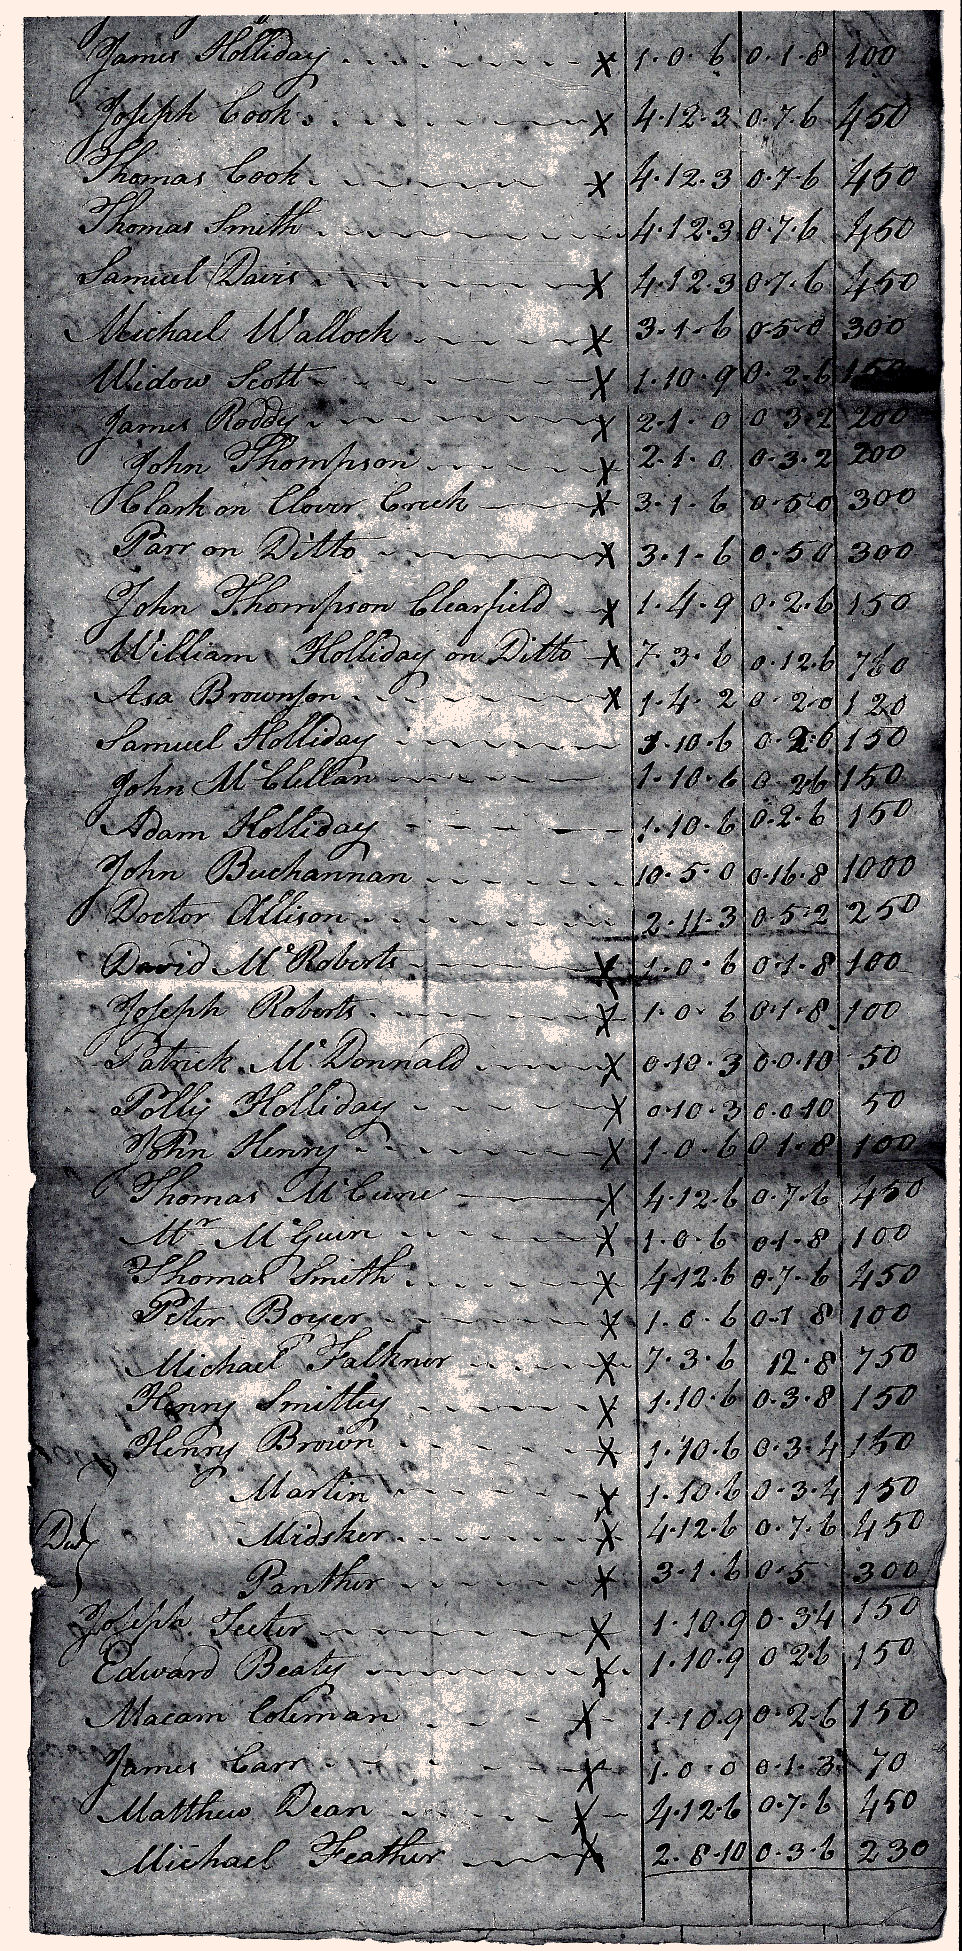 James Holliday X 1·0·6 0·1·8 100
Joseph Cook X 4·12·3 0·7·6 450
Thomas Cook X 4·12·3 0·7·6 450
Thomas Smith 4·12·3 0·7·6 450
Samuel Davis X 4·12·3 0·7·6 450
Meichael Wallock X 3·1·6 0·5·0 300
Widow Scott X 1·10·9 0·2·6 150
James Roddy X 2·1·0 0 3·2 200
John Thompson X 2·1·0 0·3·2 200
Clark on Clover Creek X 3·1·6 0·5·0 300
Parr on Ditto X 3·1·6 0·5·0 300
John Thompson Clearfield X 1·4·9 0·2·6 150
William Holliday on Ditto X 7·3·6 0·12·6
Asa Brownson X 1·4·2 0·2·0 120
Samuel Holliday 1·10·6 0·2·6 150
John McClellan 1·10·6 0·2·6 150
Adam Holliday 1·10·6 0·2·6 150
John Buchannan 10·5·0 0·16·8 1000
Doctor Allison 2·11·3 0·5·2 250
David McRoberts X 1·0·6 0·1·8 100
Joseph Roberts X 1·0·6 0·1·8 100
Patrick McDonnald X 0·10·3 0·0·10 50
Polly Holliday X 0·10·3 0·0·10 50
John Henry X 1·0·6 0·1·8 100
Thomas McCune X 4·12·6 0·7·6 450
Mr McGuin X 1·0·6 0·1·8 100
Thomas Smith X 4·12·6 0·7·6 450
Peter Boyer X 1·0·6 0·1·8 100
Michael Falkner X 7·3·6 12·8 750
Henry Smitley X 1·10·6 0·3·8 150
Henry Brown X 1·10·6 0·3·4 150
Martin X 1·10·6 0·3·4 150
Midsker X 4·12·6 0·7·6 450
Panther X 3·1·6 0·5 300
Joseph Teeter X 1·10·9 0·3·4 150
Edward Beaty X 1·10·9 0 2·6 150
Macam Coleman X 1·10·9 0·2·6 150
James Carr X 1·0·0 0·1·3 70
Matthew Dean X 4·12·6 0·7·6 450
Michael Feather X 2·8·10 0·3·6 230